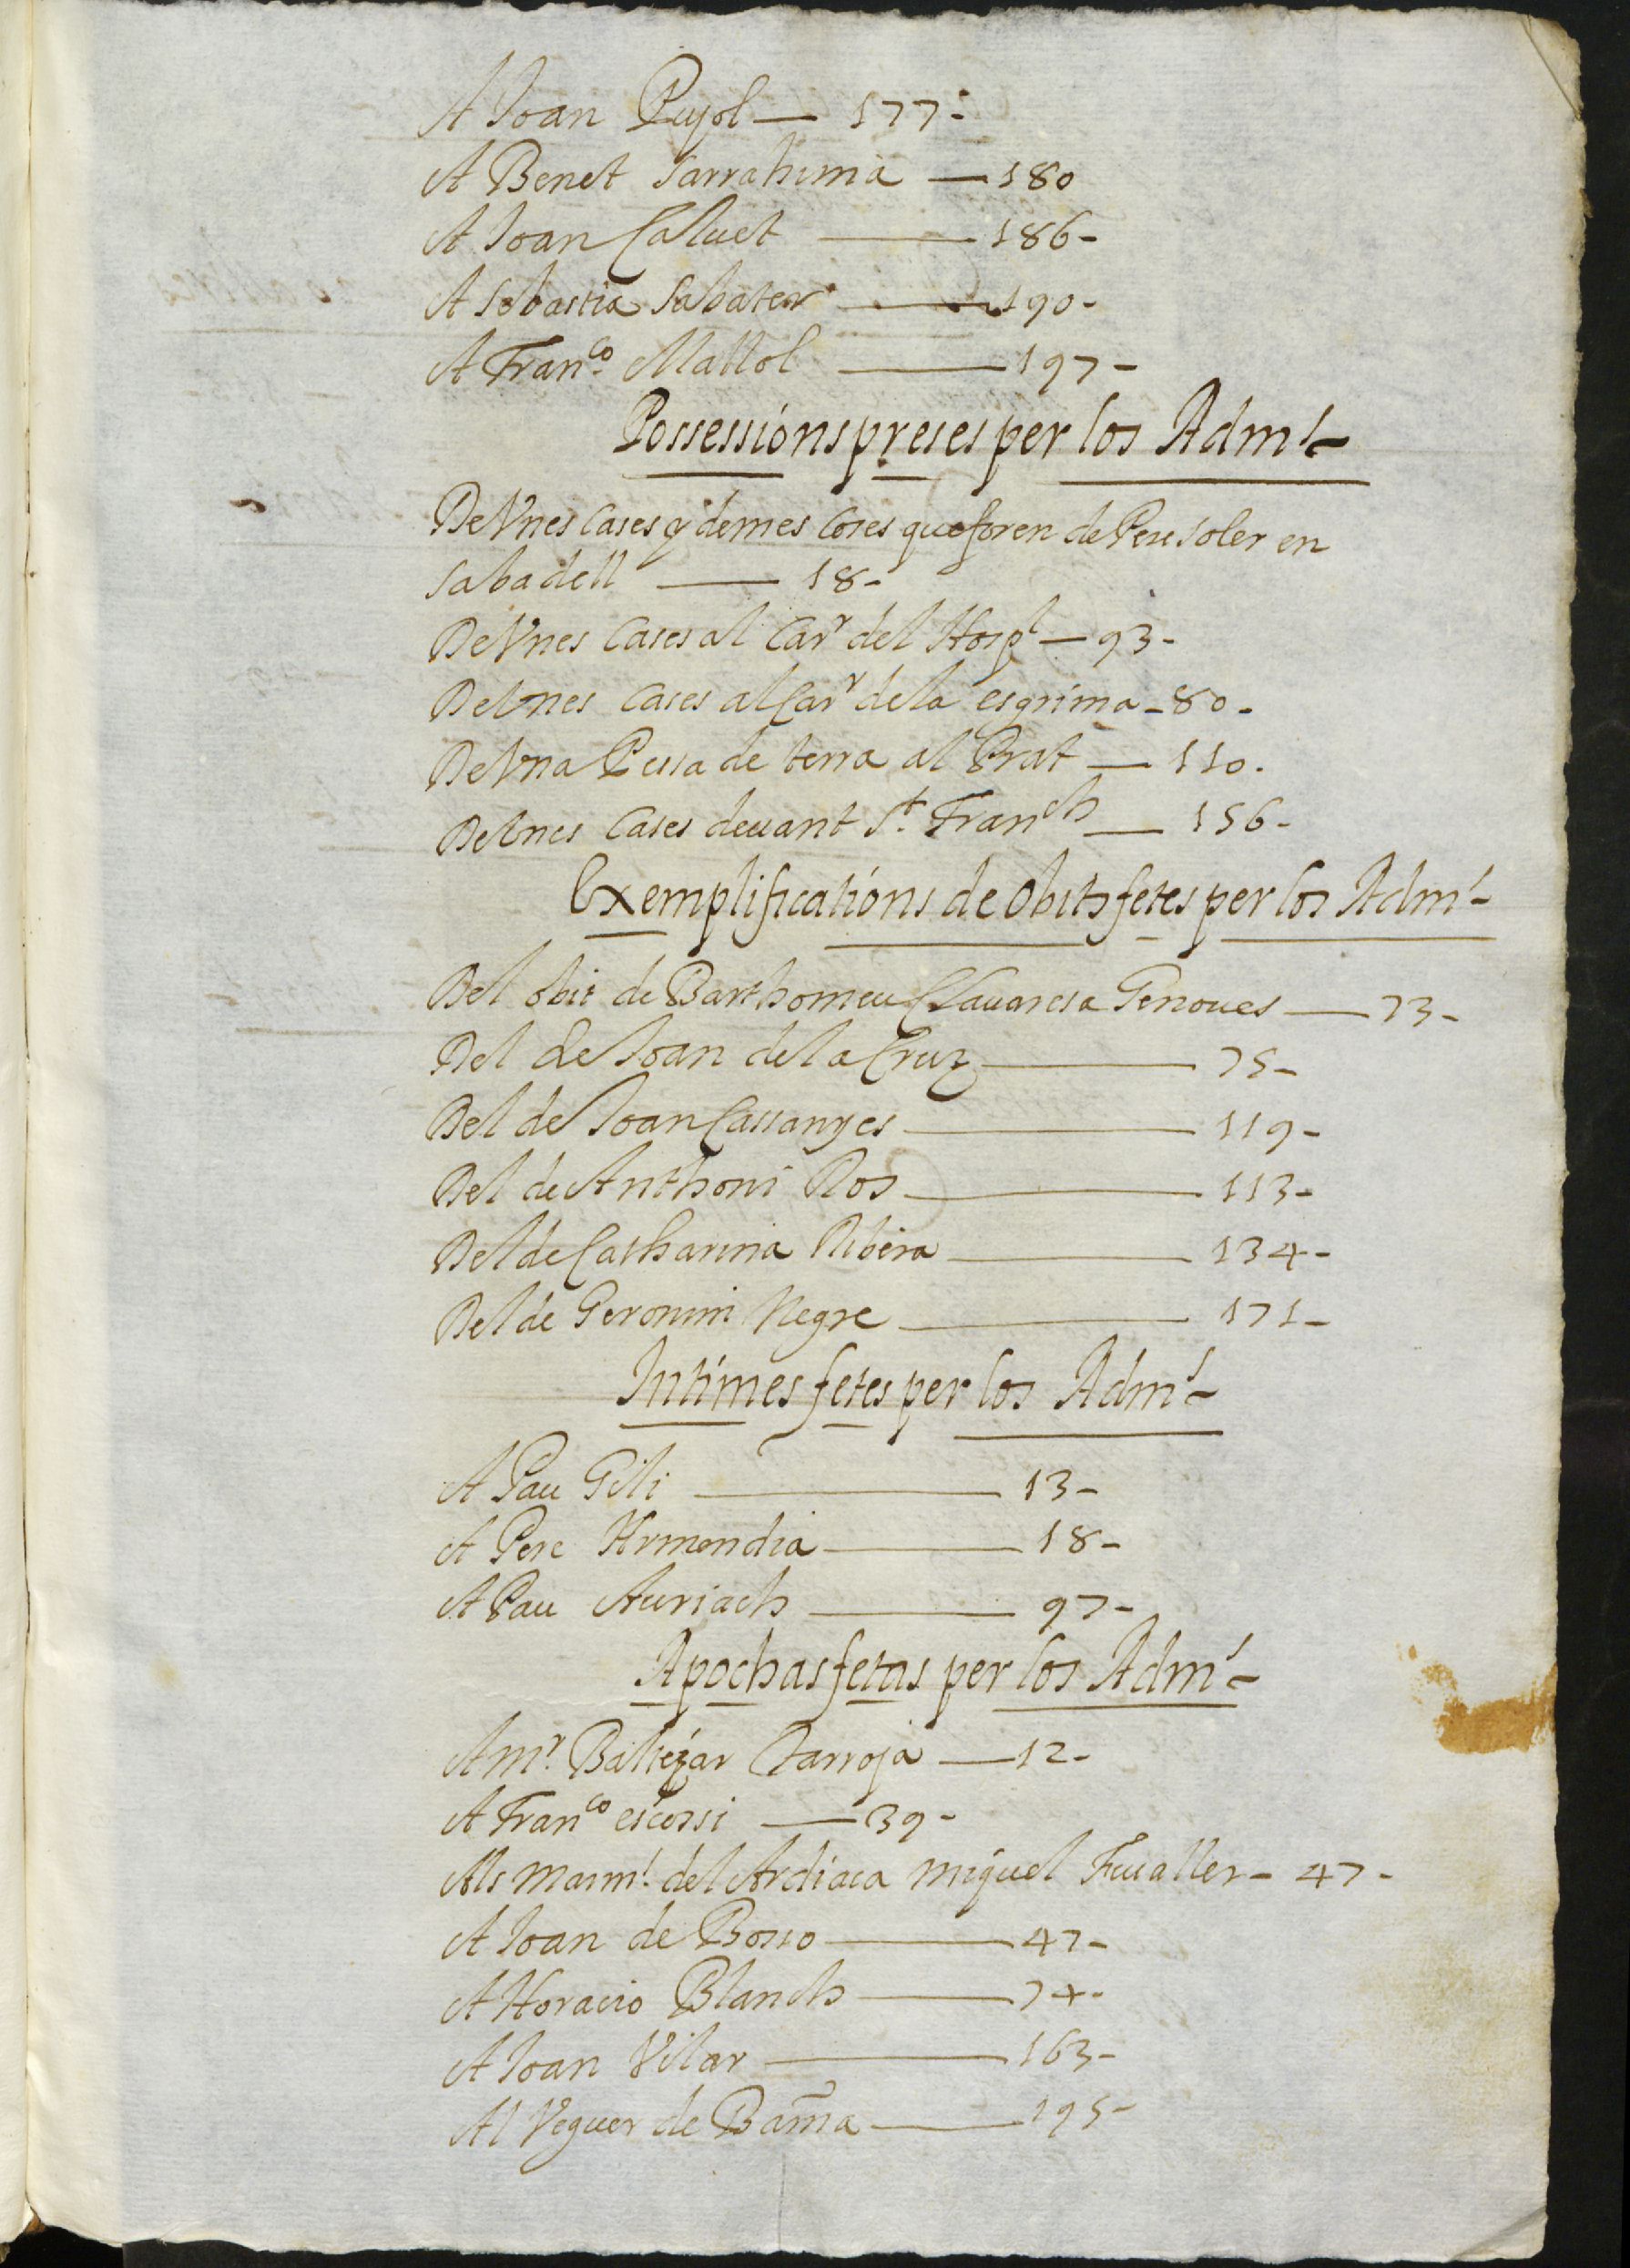 A Joan Pujol — 177-
A Benet Sarrahima — 180
A Joan Calvet — 186-
A Sebastia Sabater — 190-
A Fran.co Mallol — 197-
Possessions preses per los Adm.s
De Vnes Cases y demes Coses que foren de Pere Soler en
Sabadell — 18-
De Vnes Cases al Carr del Hospl — 93-
De Vnes Cases al Carr de la esgrima - 80-
De Vna Pessa de terra al Prat — 110.
De Vnes Cases deuant St. Franch — 156-
Exemplifications de Obits fetes per los Adm.s
Del obit de Barthomeu Clauaresa Genoues — 73-
Del de Joan de la Cruz — 75-
Del de Joan Cassanyes — 119-
Del de Anthoni Ros — 113-
Del de Catharina Ribera — 134-
Del de Geronim Negre — 171-
Intimes fetes per los Adm.s
A Pau Gili — 13-
A Pere — 18-
A Pau Auriach — 97-
Apochas fetas per los Adm.s
A mr. Baltezar Clarroja — 12-
A Fran.co escossi — 39-
Als Marm.s del Ardiaca Miquel Fiualler - 47-
A Joan de Bosso — 47-
A Horacio Blanch — 74-
A Joan Vilar — 163-
Al Veguer de Barna — 195-